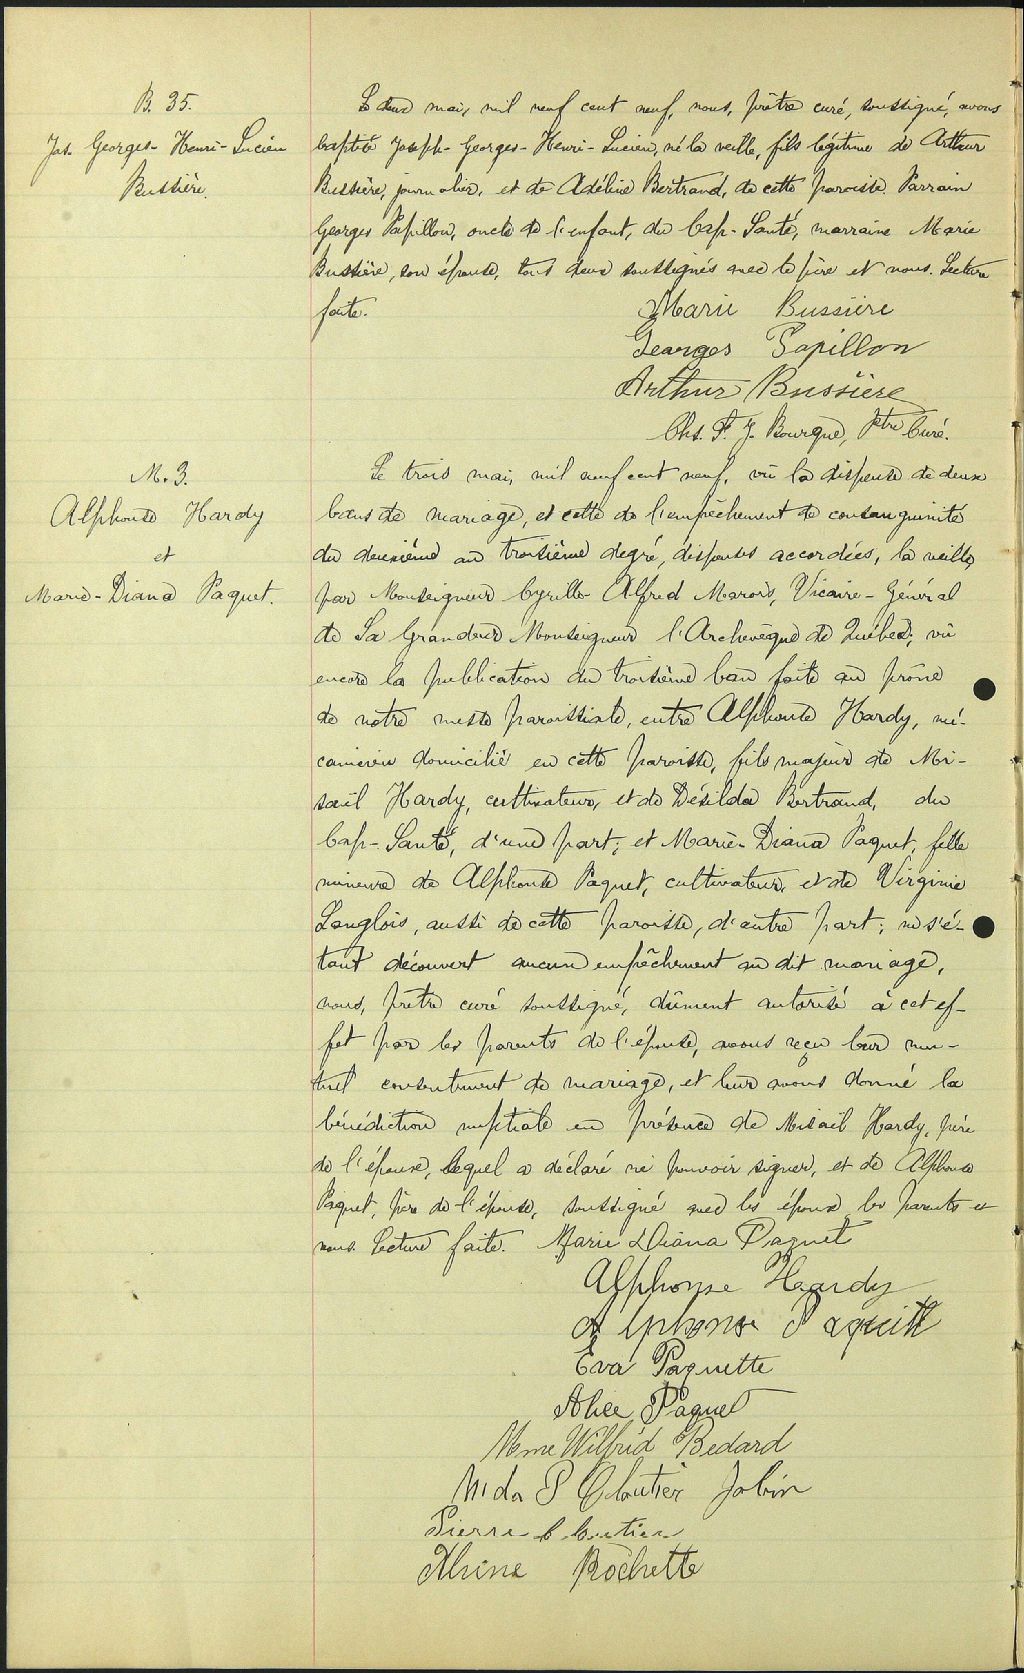 B. 35.
Jos. Georges-Henri-Lucien
Bussière.
Le deux mai, mil neuf cent neuf, nous, prêtre curé, soussigné, avons
baptisé Joseph-Georges-Henri-Lucien, né la veille, fils légitime de Arthur
Bussière, journalier, et de Adéline Bertrand, de cette paroisse. Parrain
Georges Papillon, oncle de l'enfant, du Cap-Santé, marraine Marie
Bussière, son épouse, tous deux soussignés avec le père et nous. Lecture
faite.
Marie Bussière
Georges Papillon
Arthur Bussière
Chs. F. J. Bourque, Ptre Curé.
M. 3.
Alphonse Hardy
et
Marie-Diana Paquet.
Le trois mai, mil neuf cent neuf, vu la dispense de deux
bans de mariage, et celle de l'empêchement de consanguinité
du deuxième au troisième degré, dispenses accordées, la veille,
par Monseigneur Cyrille Alfred Marois, Vicaire-Général
de Sa Grandeur Monseigneur l'Archevêque de Québec; vu
encore la publication du troisième ban faite au prône
de notre messe paroissiale, entre Alphonse Hardy, mé-
canicien domicilié en cette paroisse, fils majeur de Mi-
saël Hardy, cultivateur, et de Désilda Bertrand, du
Cap-Santé, d'une part; et Marie-Diana Paquet, fille
mineure de Alphonse Paquet, cultivateur, et de Virginie
Langlois, aussi de cette paroisse, d'autre part; ne s'é-
tant découvert aucun empêchement au dit mariage,
nous, prêtre curé soussigné, dûment autorisé à cet ef-
fet par les parents de l'épouse, avons reçu leur mu-
tuel consentement de mariage, et leur avons donné la
bénédiction nuptiale en présence de Misaël Hardy, père
de l'époux, lequel a déclaré ne pouvoir signer, et de Alphonse
Paquet, père de l'épouse, soussigné avec les époux, les parents et
nous. Lecture faite. Marie Diana Paquet
Alphonse Hardy
Alphonse Paquett
Eva Paquette
Alice Paquet
Mme Wilfrid Bedard
P Cloutier Jobin
Pierre Cloutier
Rochette